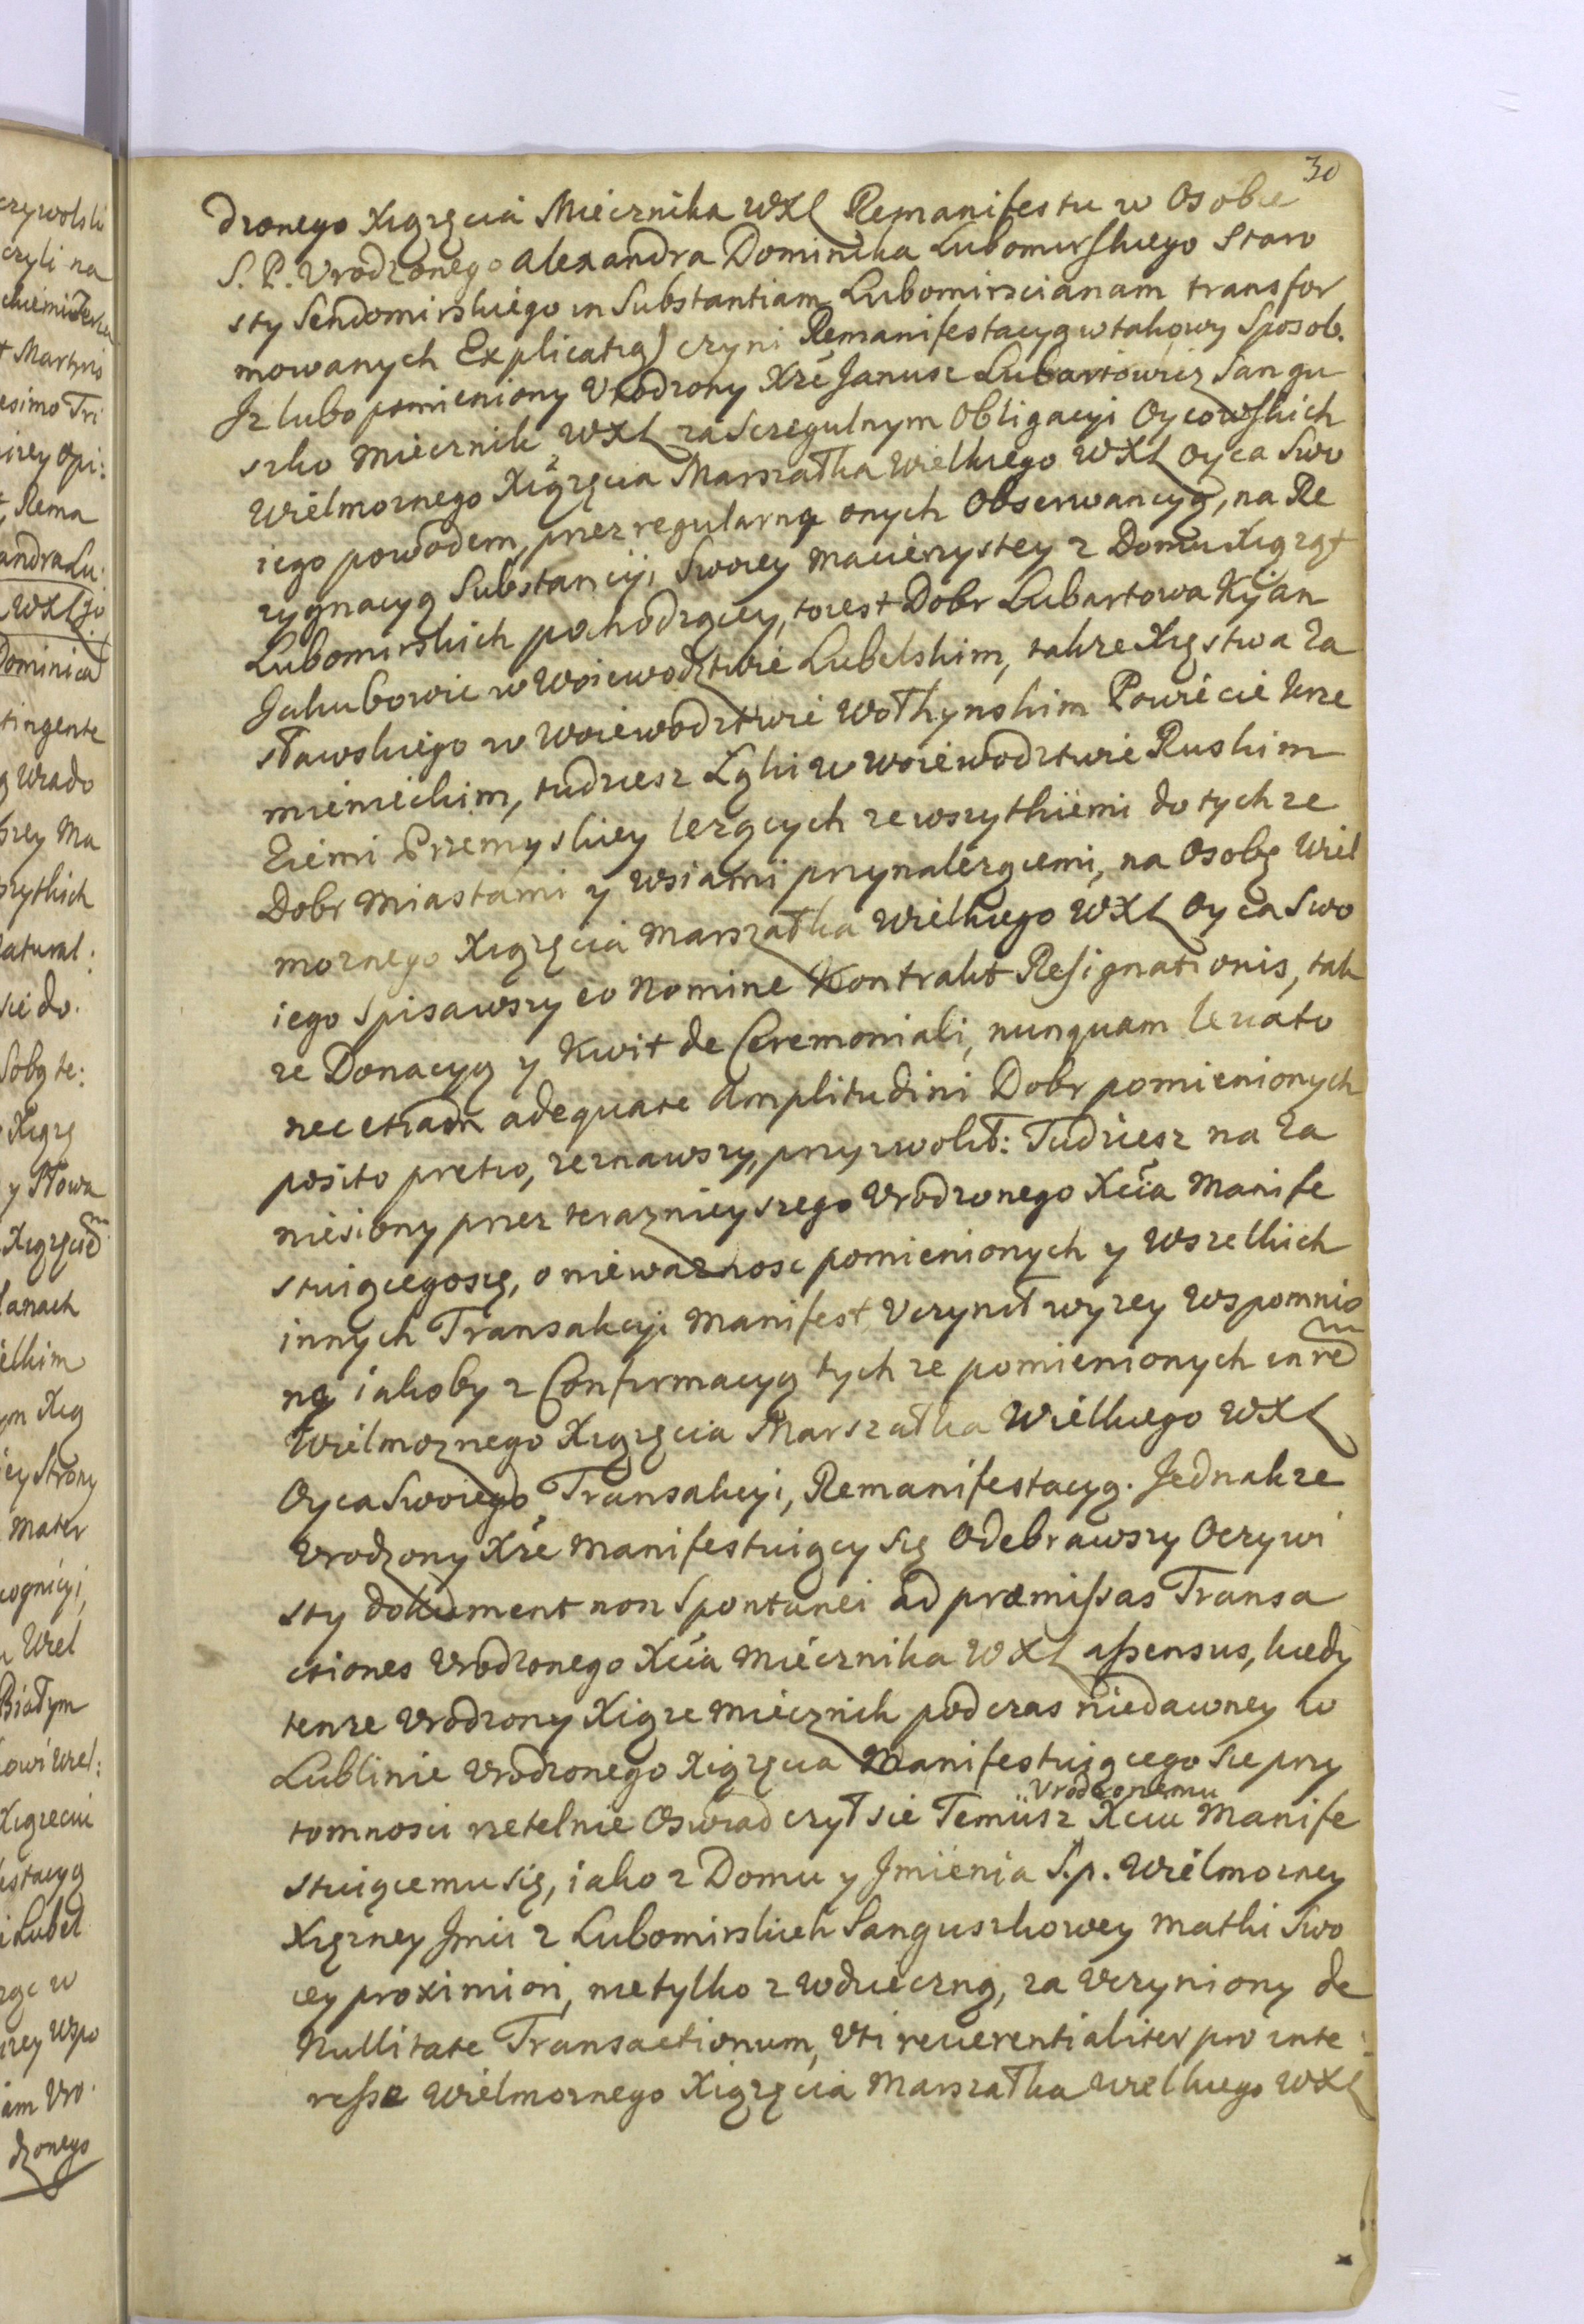 30
dzonego Xiązęcia Miecznika WXL Remanifestu w Osobie
S. P. Vrodzonego Alexandra Dominika Lubomirskiego Staro
sty Sendomirskiego in Substantiam Lubomirscianam transfor
mowanych Explicatią) czyni Remanifestacyą w takowy Sposob.
Jz lubo pomieniony Vrodzony Xże Janusz Lubartowicz Sangu
szko Miecznik WXL za Szczegulnym Obligacyi Oycowskich
Wielmoznego Xiązęcia Marszałka Wielkiego WXL Oyca Swo
iego powodem, przez regularną onych Obserwancyą, na Re
zygnacyą Substancyi Swoiey Macierzystey z Domu Xiąząt
Lubomirskich pochodzącey, toiest Dobr Lubartowa Kijan
Jakubowic w Woiewodztwie Lubelskim, takze Xięstwa Za
sławskiego w Woiewodztwie Wołhynskim Powiecie Krze
mienieckim, tudziesz Łąki w Woiewodztwie Ruskim
Ziemi Przemyskiey lezących ze wszytkiemi do tych ze
Dobr Miastami y Wsiami przynalezącemi, na Osobę Wiel
moznego Xiązęcia Marszałka Wielkiego WXL Oyca Swo
iego Spisawszy eo Nomine Kontrakt Resignationis, tak
ze Donacyą y Kwit de Ceremoniali, nunquam levato
nec etiam adequate Amplitudini Dobr pomienionych
posito pretio, zeznawszy, przyzwolił: Tudziesz na Za
niesiony przez terazniejszego Vrodzonego Xcia Manife
stuiącegosię, o niewaznosc pomienionych y Wszelkich
innych Transakcyi Manifest, Vczynił wyzey Wspomnio
ną iakoby z Confirmacyą tych ze pomienionych in rem
Wielmoznego Xiązęcia Marszałka Wielkiego WXL
Oyca Swoiego Transakcyi, Remanifestacyą. Jednakze
Vrodzony Xże Manifestuiący Się Odebrawszy Oczywi
sty dokument non Spontanei ad præmissas Transa
ctiones Vrodzonego Xcia Miecznika WXL assensus, kiedy
tenze Vrodzony Xiąze Miecznik podczas niedawney w
Lublinie Vrodzonego Xiązęcia Manifestuiącego Sie przy
tomnosci rzetelnie Oswiadczył sie Temusz Vrodzonemu Xciu Manife
stuiącemu Się, iako z Domu y Jmienia S.p. Wielmozney
Xięzney Jmci z Lubomirskich Sanguszkowey Matki Swo
iey proximiori, nie tylko z Wdzieczną, za Vczyniony de
Nullitate Transactionum, Vti reverentialiter pro inte:
resse Wielmoznego Xiązęcia Marszałka Wielkiego WXL